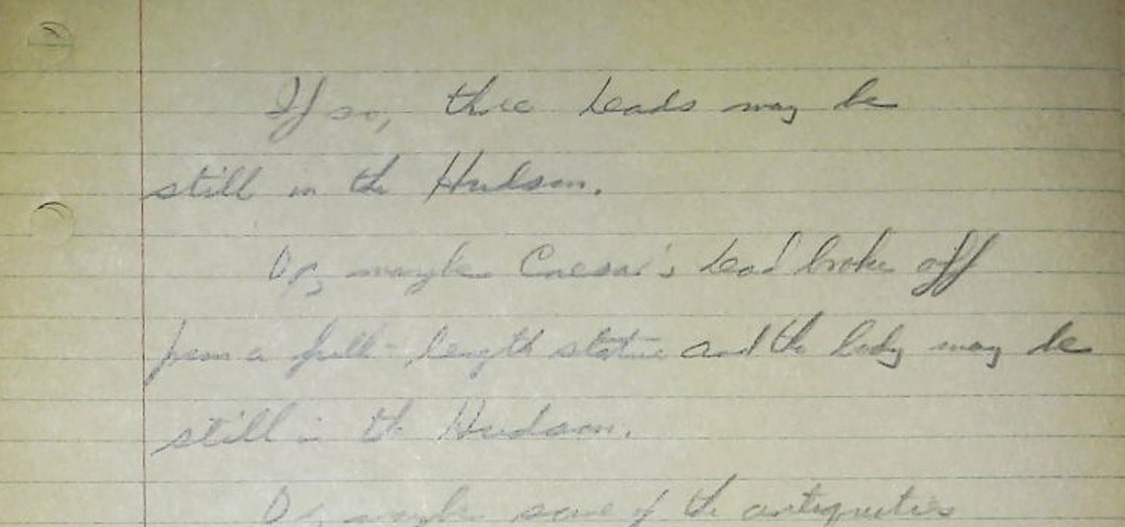 If so, those heads may be
still in the Hudson.
Or, maybe Caesar's head broke off
from a full-length statue and the body may be
still in the Hudson.
Or, maybe some of the antiquities